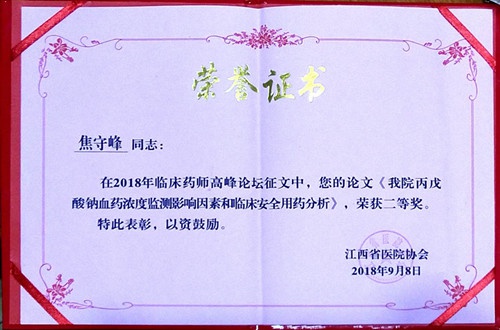 荣誉证书
焦守峰 同志：
在2018年临床药师高峰论坛征文中，您的论文《我院丙戊
酸钠血药浓度监测影响因素和临床安全用药分析》，荣获二等奖。
特此表彰，以资鼓励。
江西省医院协会
2018年9月8日